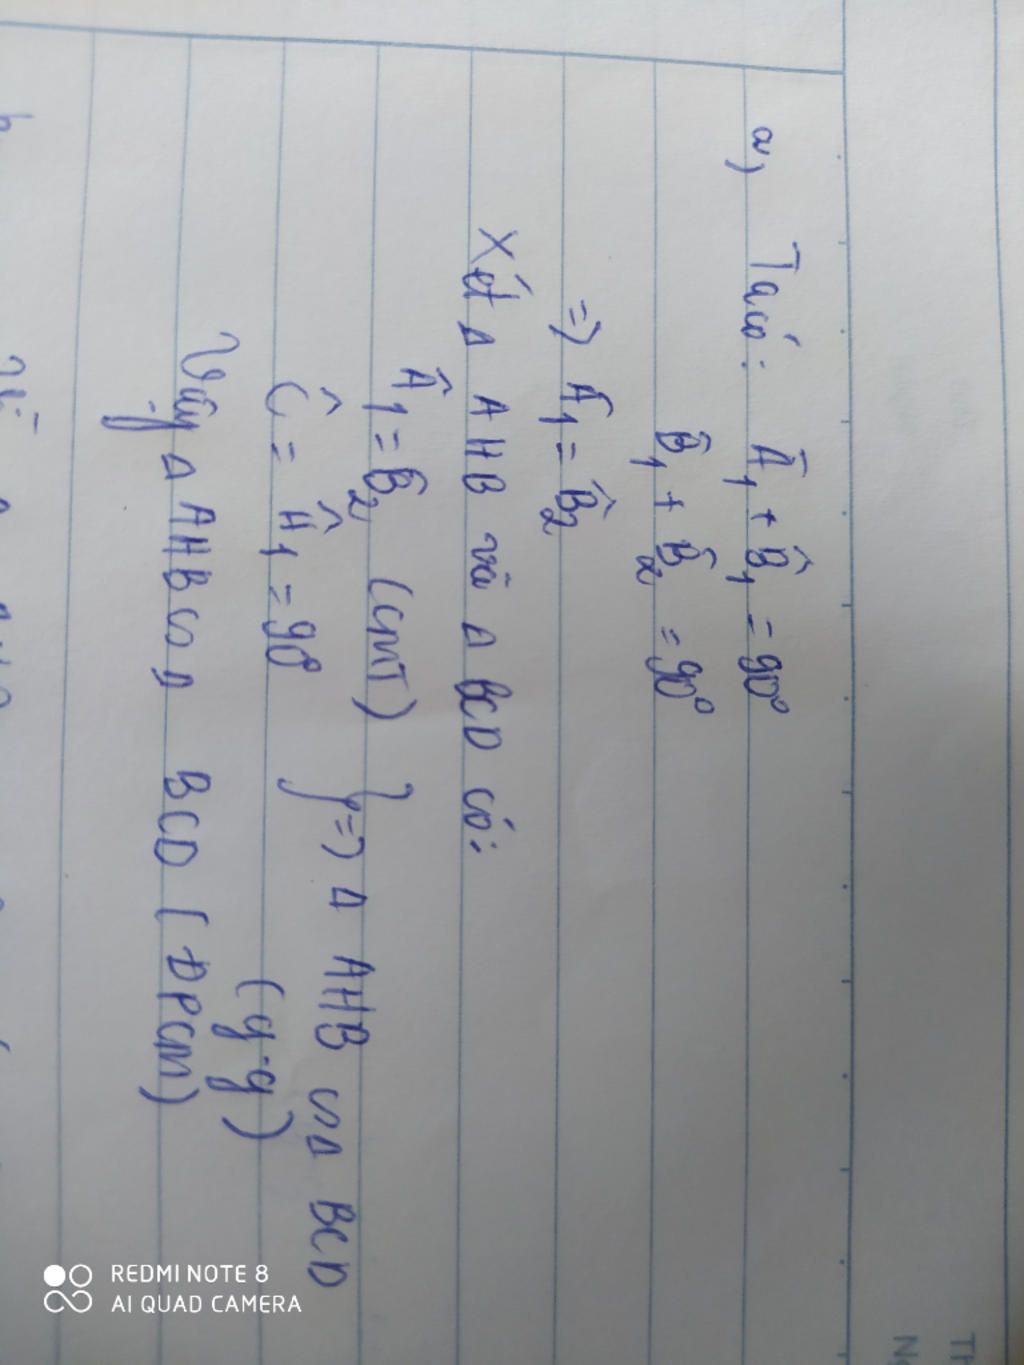 a) Ta có: Â₁ + B̂₁ = 90°
B̂₁ + B̂₂ = 90°
=> Â₁ = B̂₂
Xét Δ AHB và Δ BCD có:
Â₁ = B̂₂ (CMT)
Ĉ = Ĥ₁ = 90° } => Δ AHB ∽ Δ BCD
(g.g)
Vậy Δ AHB ∽ Δ BCD (ĐPCM)
REDMI NOTE 8
AI QUAD CAMERA